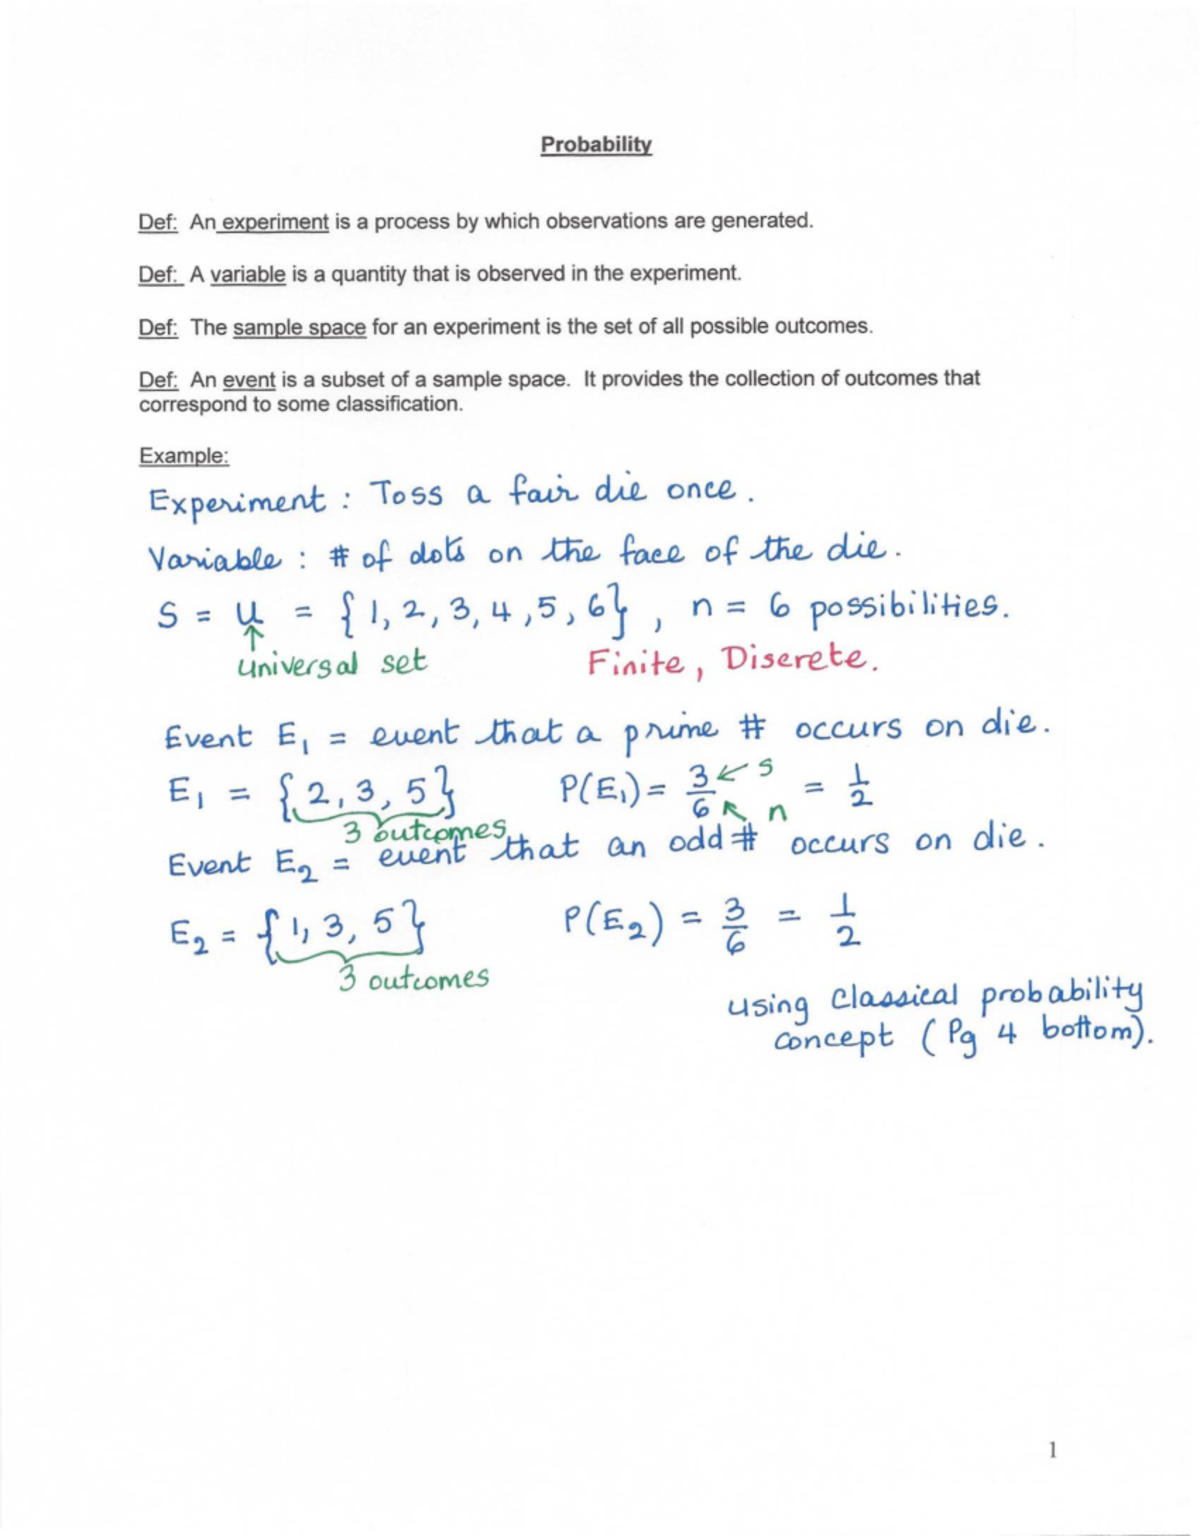 Probability
Def: An experiment is a process by which observations are generated.
Def: A variable is a quantity that is observed in the experiment.
Def: The sample space for an experiment is the set of all possible outcomes.
Def: An event is a subset of a sample space. It provides the collection of outcomes that
correspond to some classification.
Example:
Experiment : Toss a fair die once.
Variable : # of dots on the face of the die.
S = U = {1, 2, 3, 4, 5, 6}, n = 6 possibilities.
↑
universal set Finite, Discrete.
Event E₁ = event that a prime # occurs on die.
E₁ = {2, 3, 5} P(E₁) = 3/6 ← s ↖ n = 1/2
3 outcomes
Event E₂ = event that an odd # occurs on die.
E₂ = {1, 3, 5} P(E₂) = 3/6 = 1/2
3 outcomes
using Classical probability
concept (Pg 4 bottom).
1